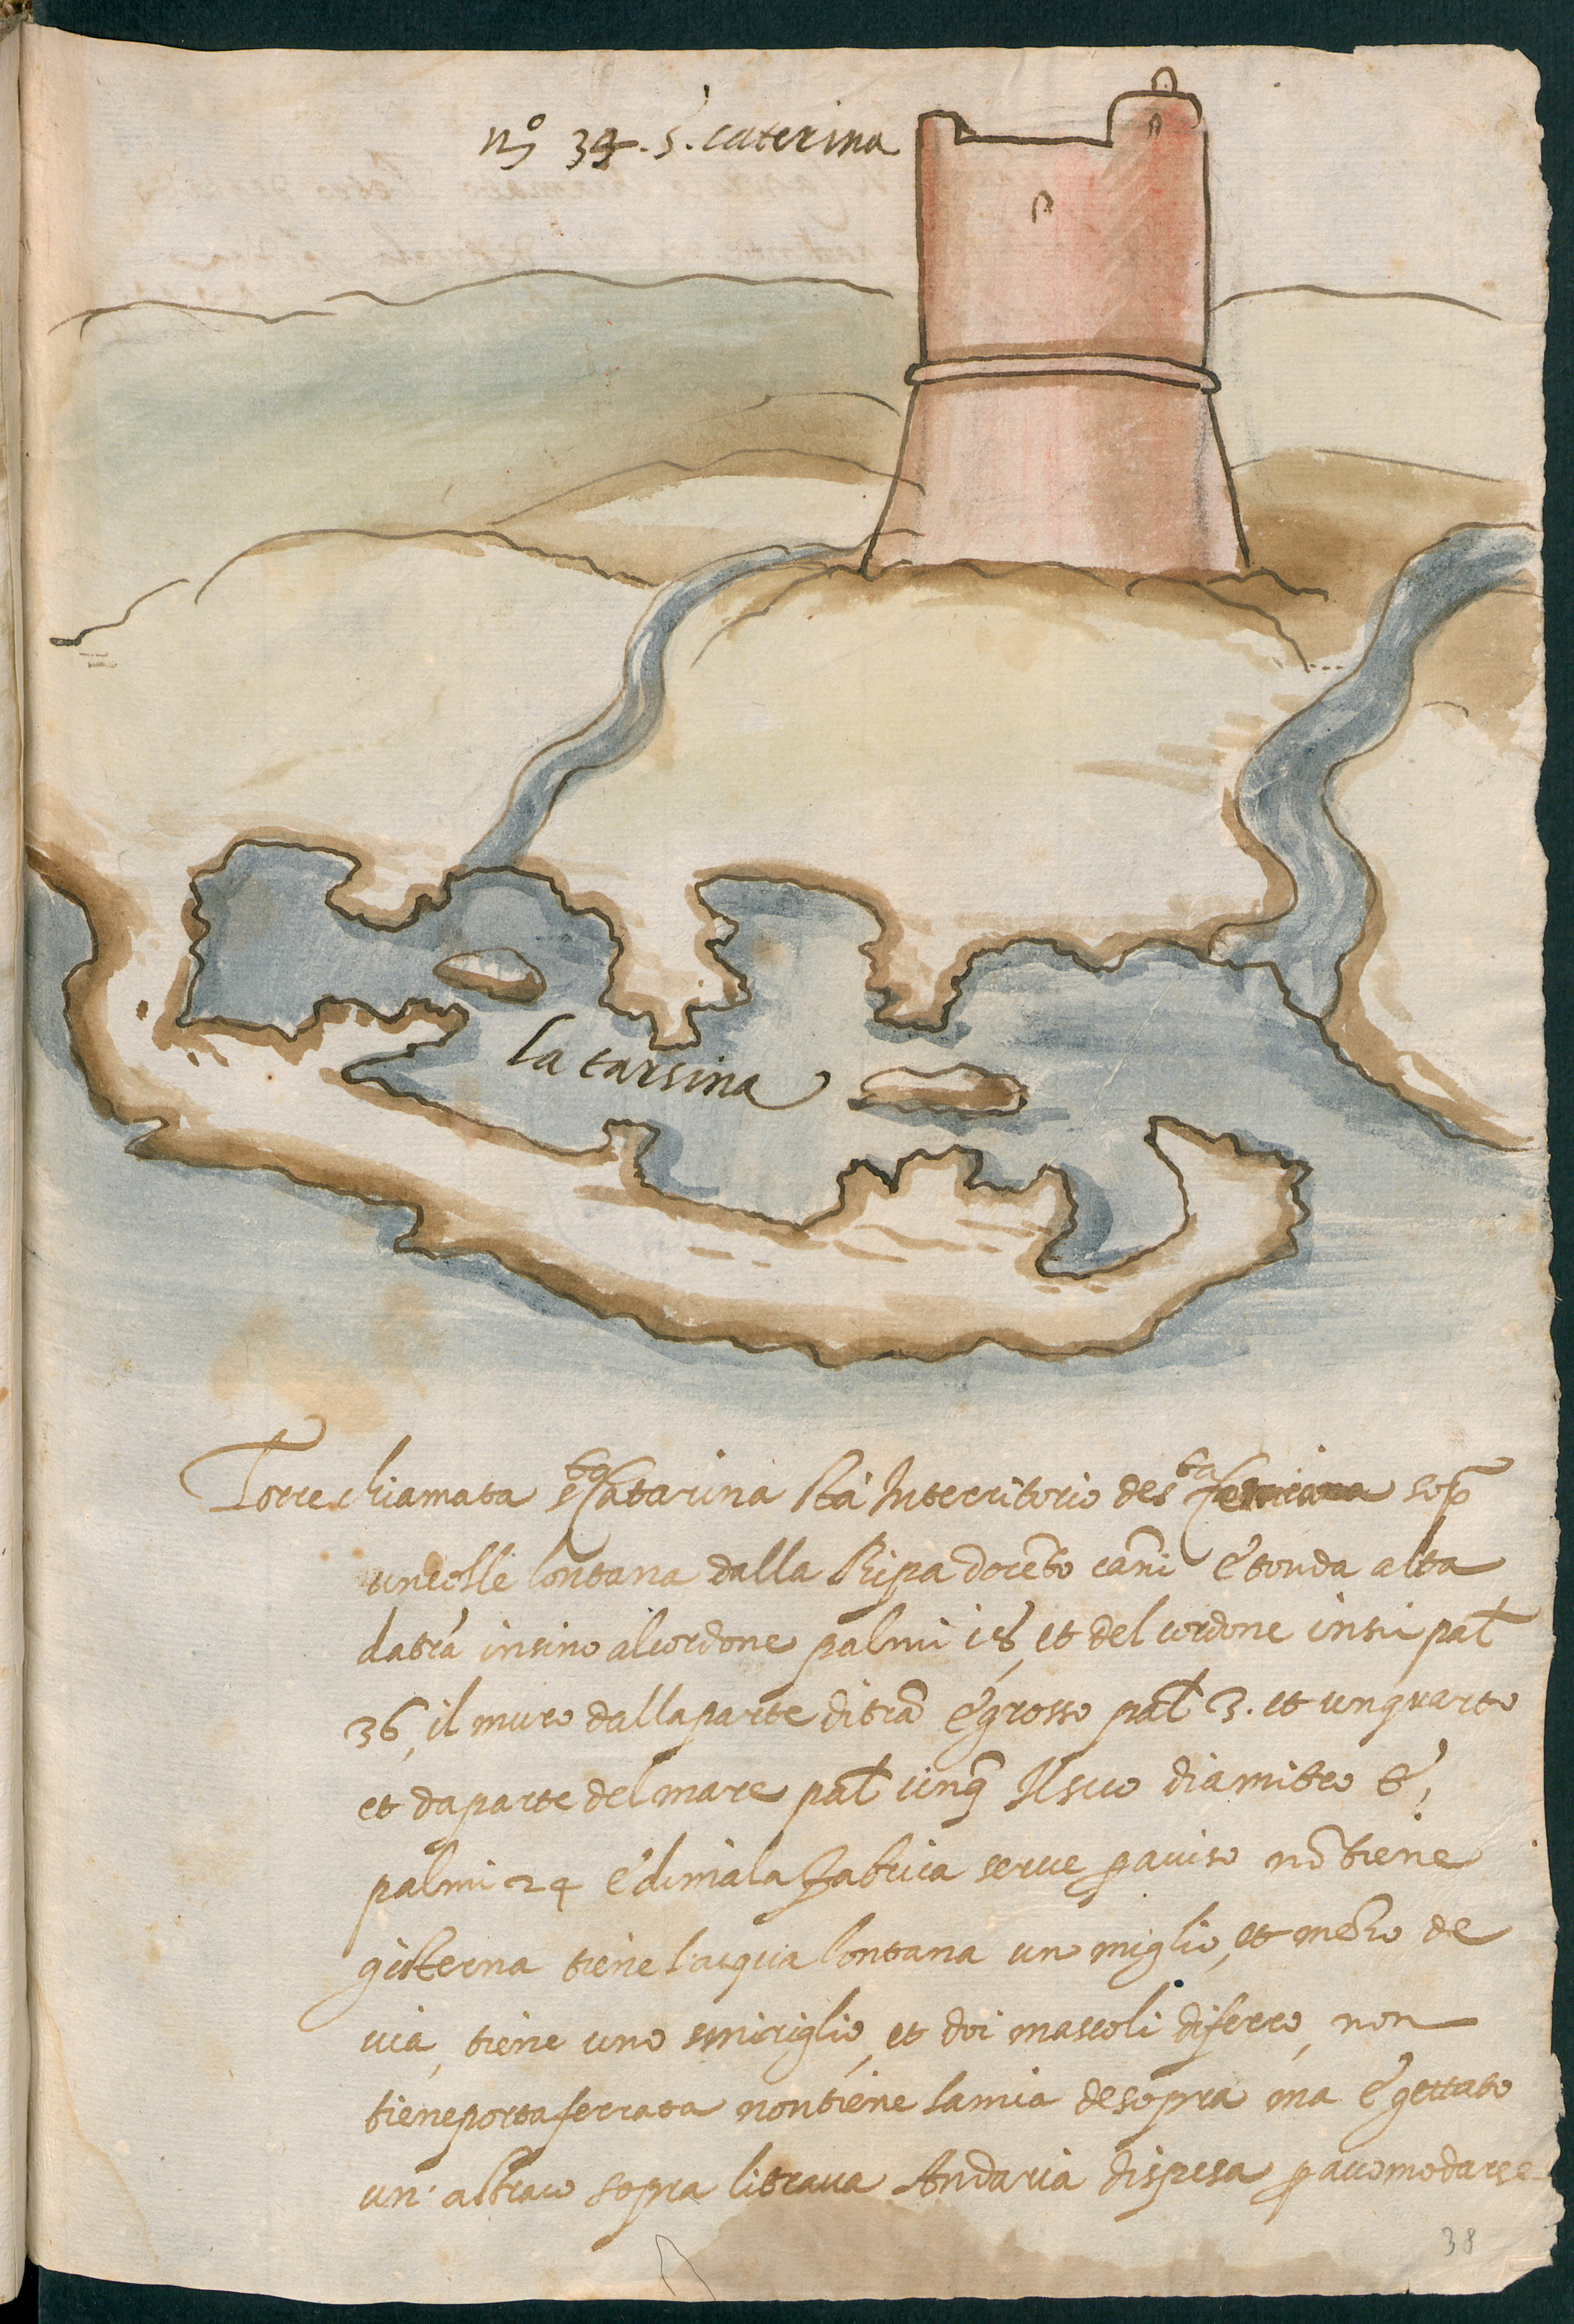 nº 34. S. caterina
la tarsina
Torre chiamata s.ta Catarina sta in territorio de s.ta sop.
un colle lontana dalla Ripa docento canni è tonda alta
da tra insino al cordone palmi 18, et del cordone in su pal.
36, il muro dalla parte di tra è grosso pal. 3. et un quarto
et da parte del mare pal. cinq. Il suo diamitro è,
palmi 24 è di mala fabrica serve p aviso nō tiene
gisterna tiene l'acqua lontana un miglio, et mezo de
via, tiene uno smiriglio, et doi mascoli di ferro, non
tiene porta ferrata non tiene lamia de sopra ma è gettato
un' altraco sopra li trava Andaria dispesa p accomodarse
38